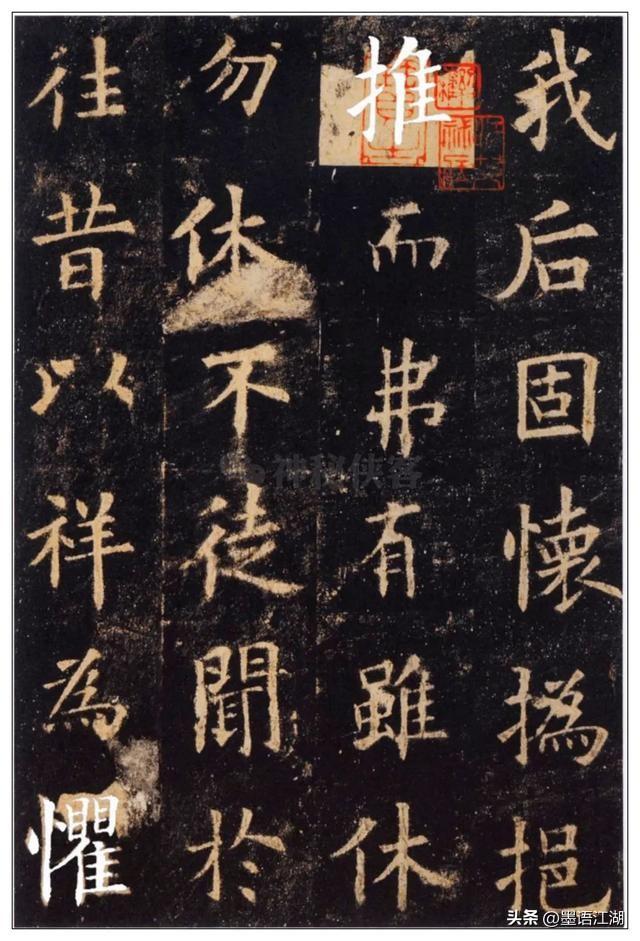 我后固懷撝挹
推而弗有雖休
勿休不徒聞於
往昔以祥為懼
神秘侠客
头条 @墨语江湖